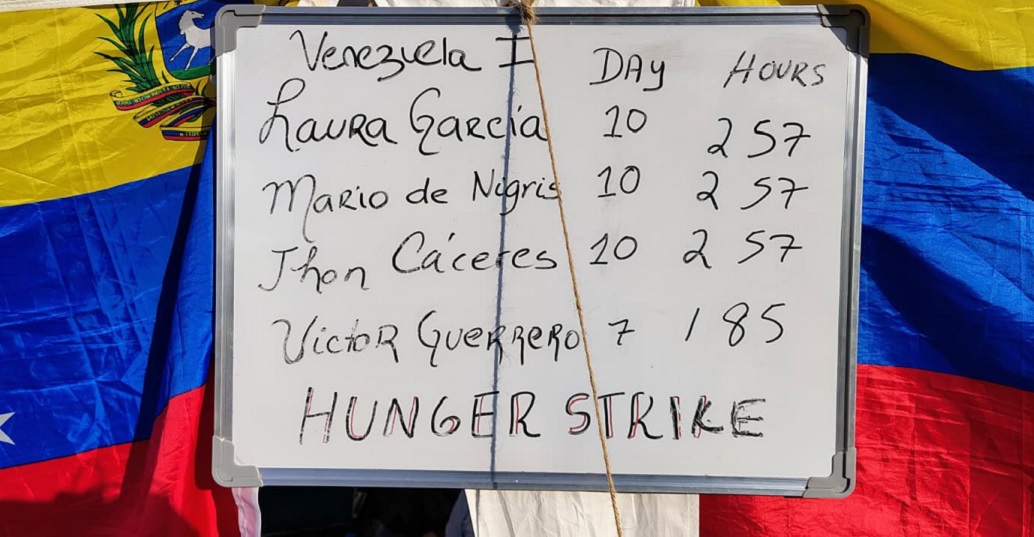 Venezuela I DAY HOURS
Laura García 10 257
Mario de Nigris 10 257
Jhon Cáceres 10 257
Victor Guerrero 7 185
HUNGER STRIKE